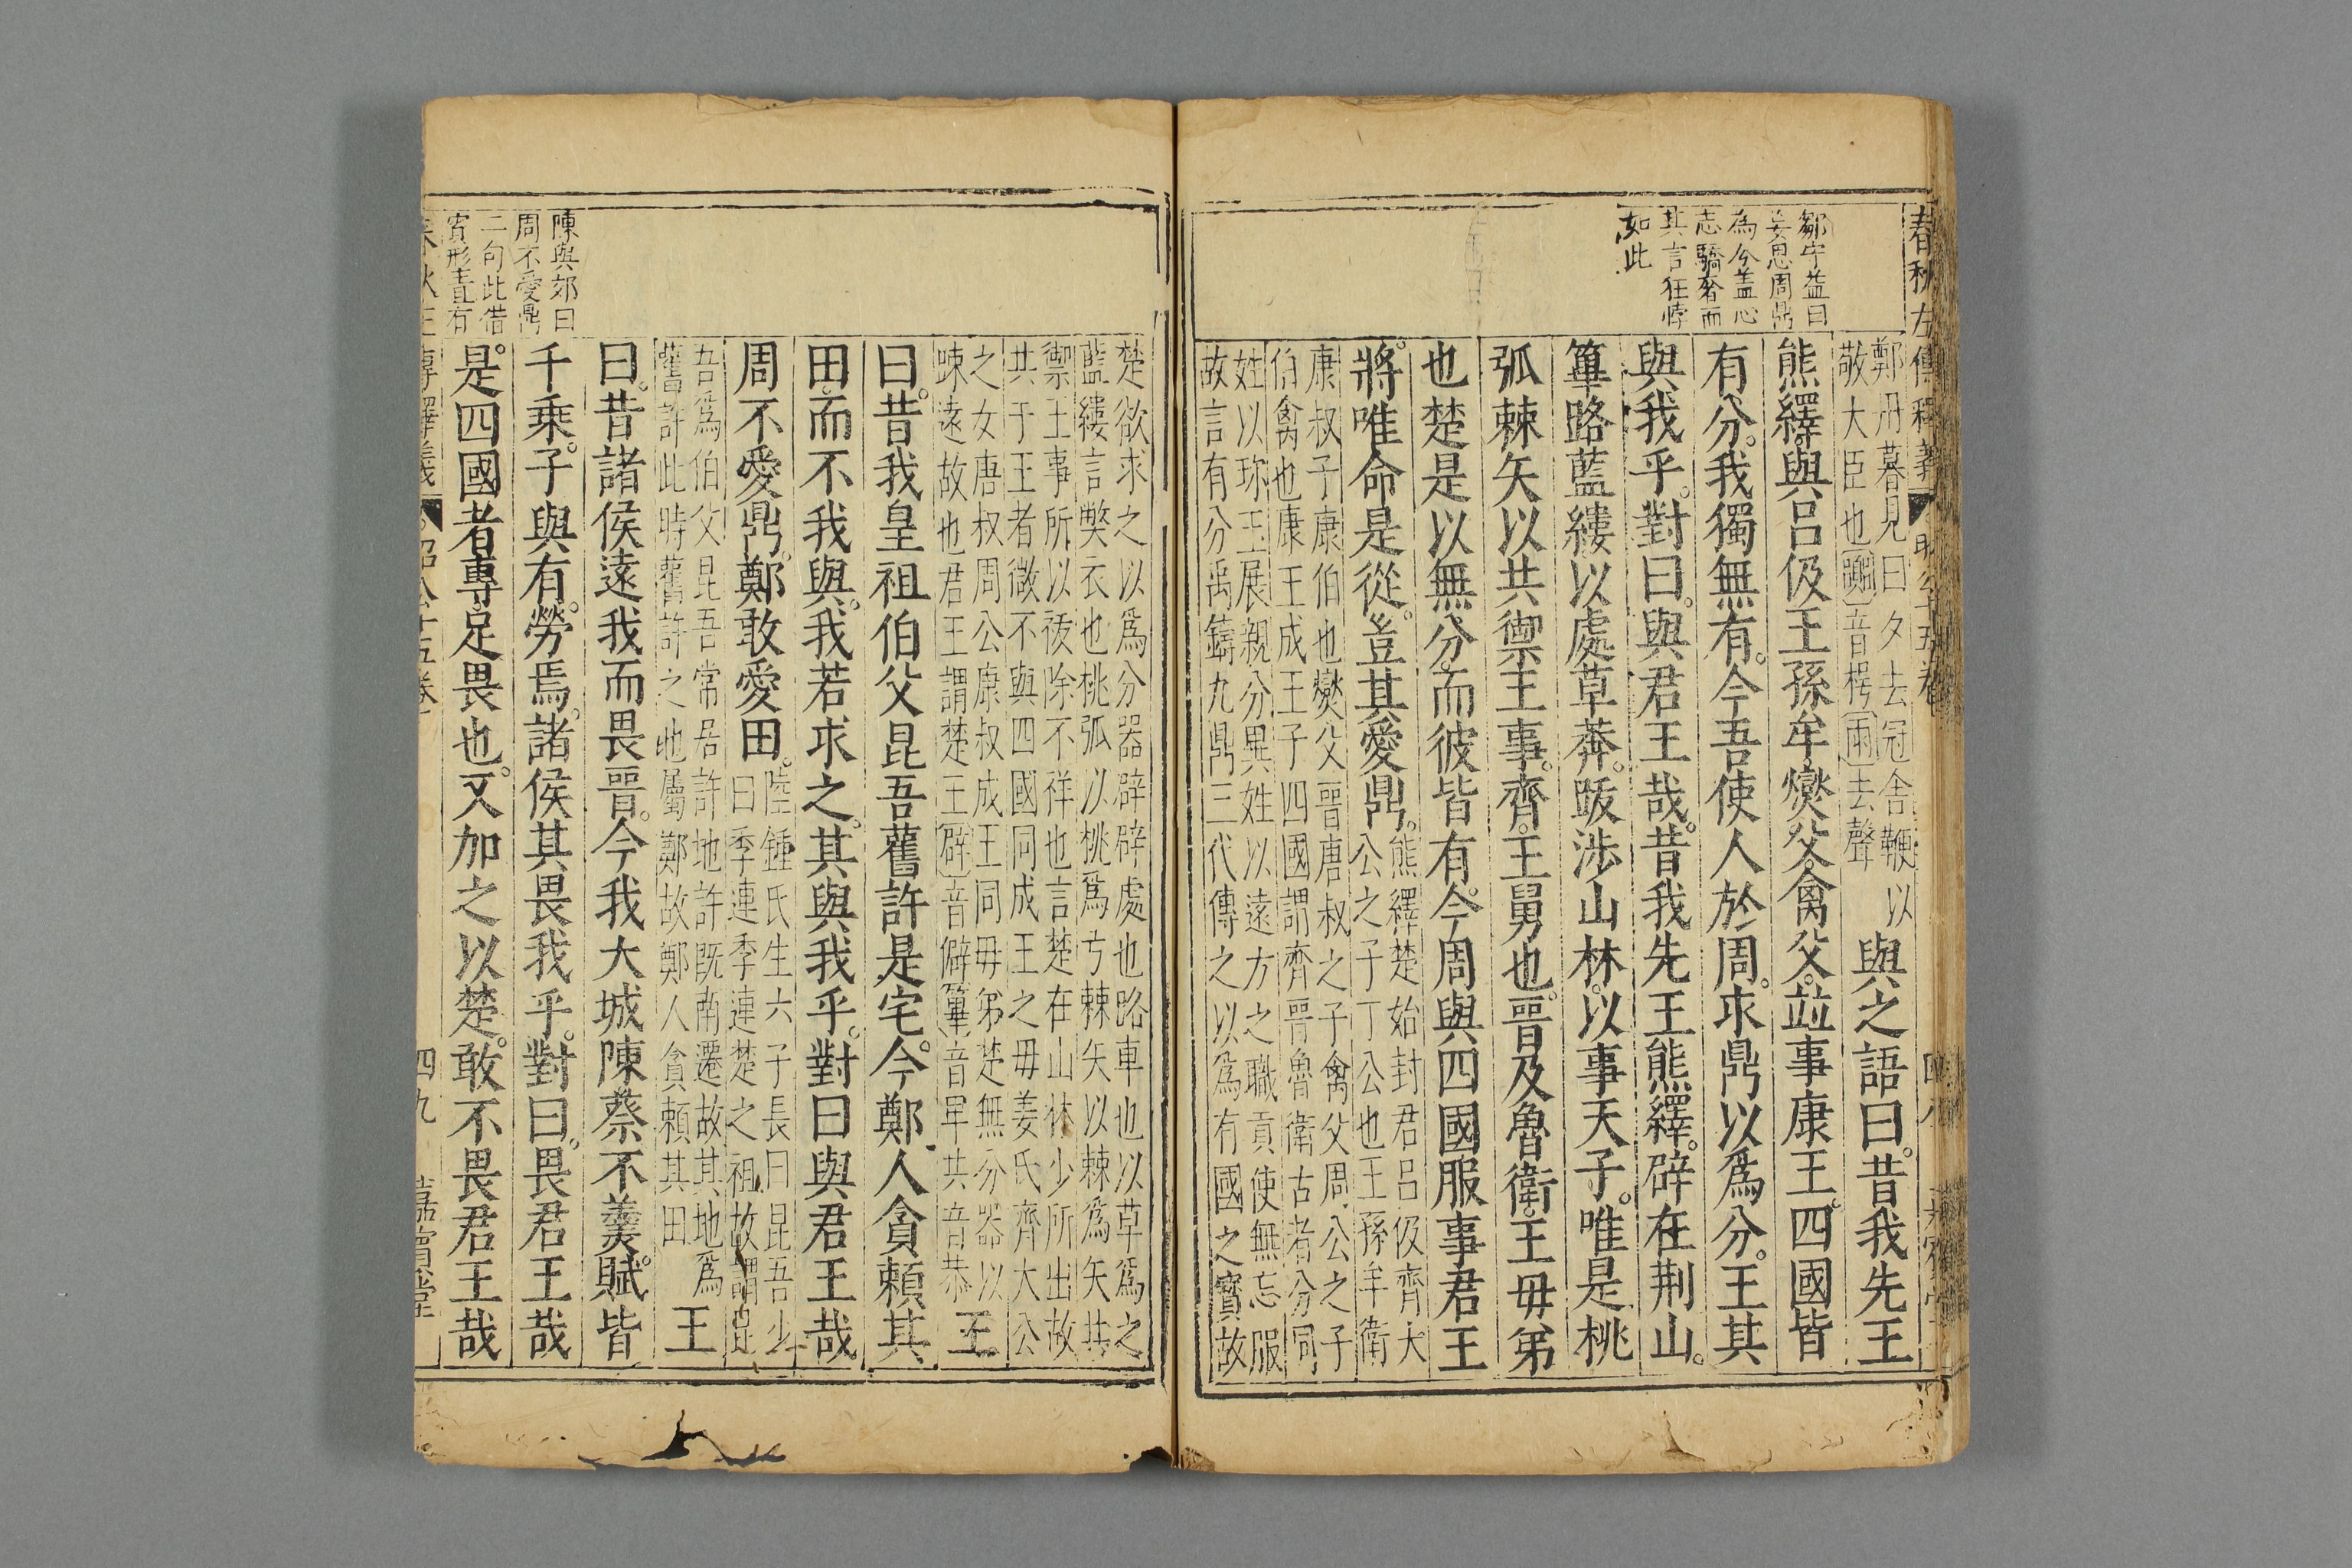 春秋左傳釋義
昭公十五卷
四八
鄒守益曰
妄思周鼎
為分蓋心
志驕奢而
其言狂悖
如此
鄭丹暮見曰夕去冠舍鞭以
敬大臣也
音楞雨去聲
與之語曰昔我先王
熊繹與呂伋王孫牟燮父禽父並事康王四國皆
有分我獨無有今吾使人於周求鼎以爲分王其
與我乎對曰與君王哉昔我先王熊繹辟在荆山
篳路藍縷以處草莽跋涉山林以事天子唯是桃
弧棘矢以共禦王事齊王舅也晉及魯衛王毋弟
也楚是以無分而彼皆有今周與四國服事君王
將唯命是從豈其愛鼎
熊繹楚始封君呂伋齊大
公之子丁公也王孫牟衛
康叔子康伯也燮父晉唐叔之子禽父周公之子
伯禽也康王成王子四國謂齊晉魯衛古者分同
姓以珎玉展親分異姓以遠方之職貢使無忘服
故言有分禹鑄九鼎三代傳之以爲有國之寳故
楚欲求之以爲分器辟辟處也路車也以草爲之
藍縷言獘衣也桃弧以桃爲弓棘矢以棘爲矢共
禦王事所以祓除不祥也言楚在山林少所出故
共于王者微不與四國同成王之毋姜氏齊大公
之女唐叔周公康叔成王同毋弟楚無分器以
疎遠故也君王謂楚王辟音僻篳音畢共音恭
王
曰昔我皇祖伯父昆吾舊許是宅今鄭人貪賴其
田而不我與我若求之其與我乎對曰與君王哉
周不愛鼎鄭敢愛田
陸鍾氏生六子長曰昆吾少
曰季連季連楚之祖故謂昆
吾爲伯父昆吾常居許地許既南遷故其地爲
舊許此時舊許之地屬鄭故鄭人貪賴其田
王
曰昔諸侯遠我而畏晉今我大城陳蔡不羹賦皆
千乘子與有勞焉諸侯其畏我乎對曰畏君王哉
是四國者專足畏也又加之以楚敢不畏君王哉
陳與郊曰
周不愛鼎
二句此借
賓形主直有
昭公十五卷
四九
嘉賓堂